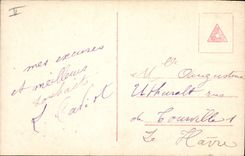 II
mes excuses
et meilleurs
souhaits
L. Cariot
Mlle Augustine
rue
de Courville
Le Havre